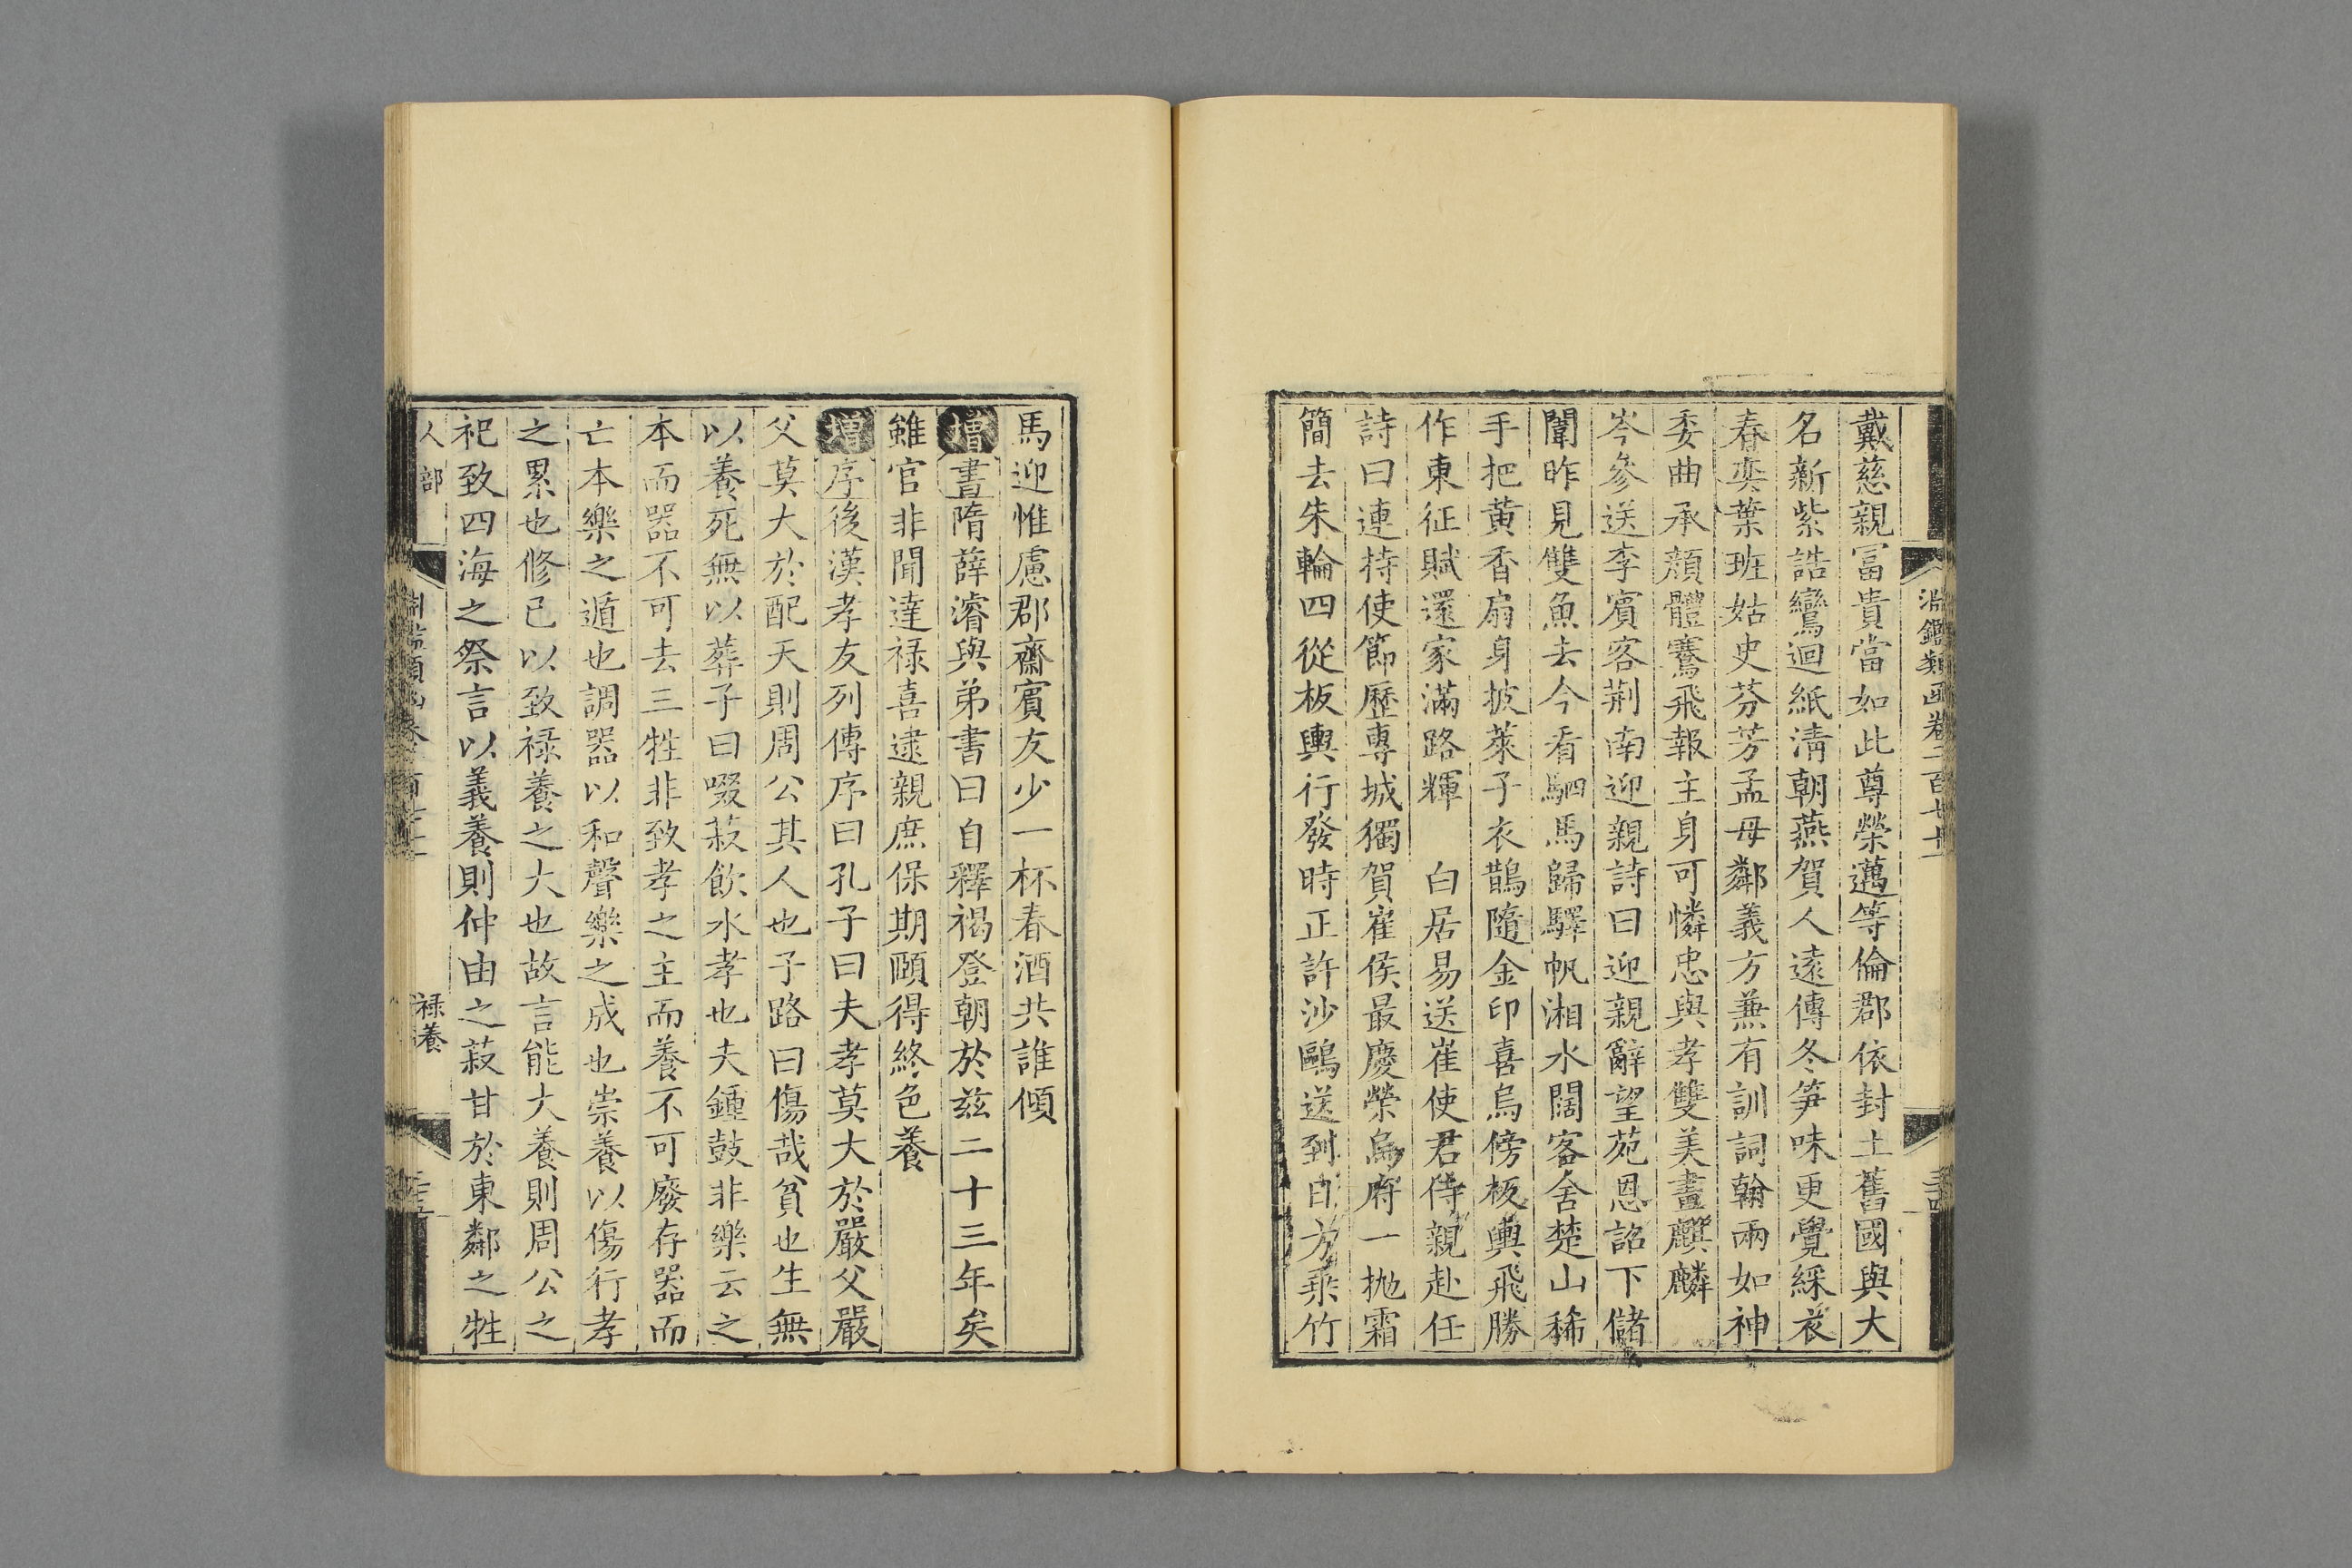 淵鑑類函卷二百七十一
戴慈親冨貴當如此尊榮邁等倫郡依封土舊國與大
名新紫誥鸞迴紙淸朝燕賀人遠傳冬笋味更覺綵衣
春奕葉班姑史芬芳孟母鄰義方兼有訓詞翰兩如神
委曲承顔體騫飛報主身可憐忠與孝雙美畫麒麟
岑參送李賓客荆南迎親詩曰迎親辭望苑恩詔下儲
闈昨見雙魚去今看駟馬歸驛帆湘水闊客舍楚山稀
手把黄香扇身披萊子衣鵲隨金印喜烏傍板輿飛勝
作東征賦還家滿路輝　白居易送崔使君侍親赴任
詩曰連持使節歷專城獨賀崔侯最慶榮烏府一抛霜
簡去朱輪四從板輿行發時正許沙鷗送到日方乘竹
馬迎惟慮郡齋賓友少一杯春酒共誰傾
增書隋薛濬與弟書曰自釋褐登朝於兹二十三年矣
雖官非聞達禄喜逮親庶保期頤得終色養
增序後漢孝友列傳序曰孔子曰夫孝莫大於嚴父嚴
父莫大於配天則周公其人也子路曰傷哉貧也生無
以養死無以葬子曰啜菽飲水孝也夫鍾鼓非樂云之
本而器不可去三牲非致孝之主而養不可廢存器而
亡本樂之遁也調器以和聲樂之成也崇養以傷行孝
之累也修已以致禄養之大也故言能大養則周公之
祀致四海之祭言以義養則仲由之菽甘於東鄰之牲
人部
禄養